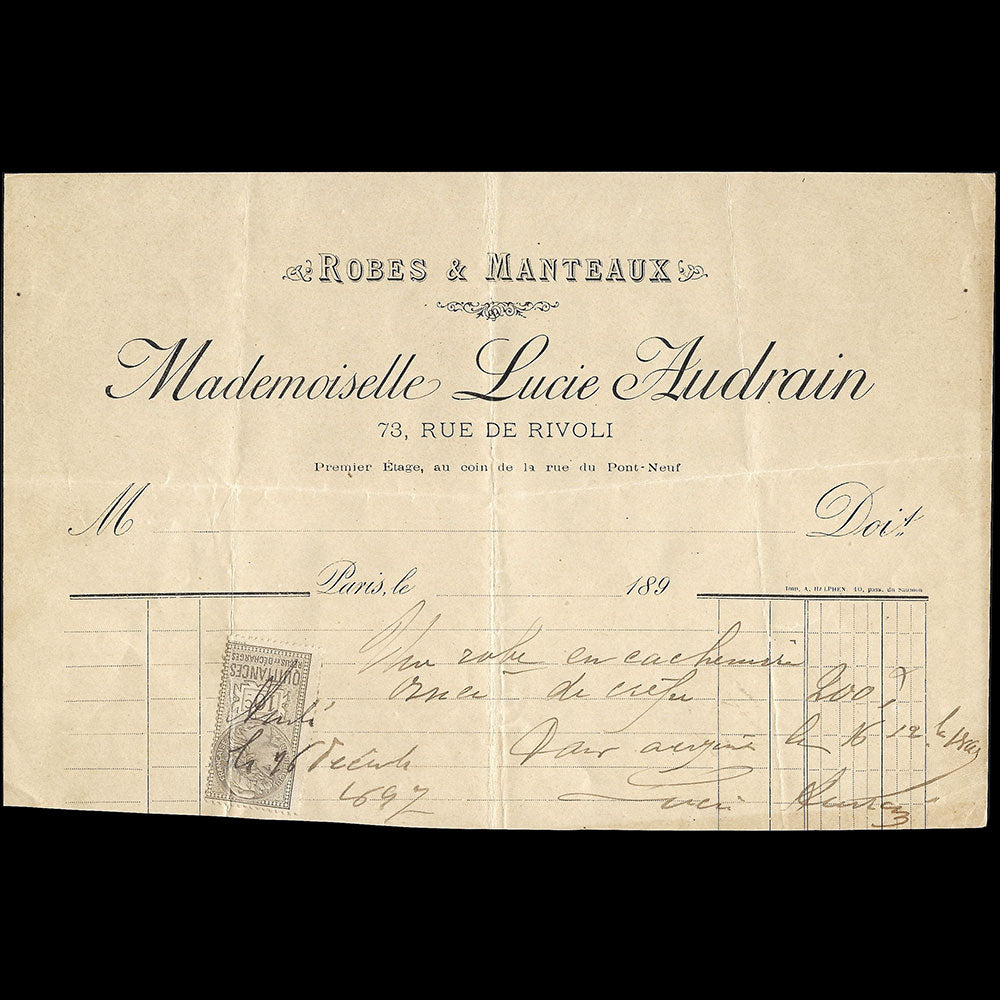 ROBES & MANTEAUX
Mademoiselle Lucie Audrain
73, RUE DE RIVOLI
Premier Étage, au coin de la rue du Pont-Neuf
M Doit
Paris, le 189
Imp. A. HALPHEN. 10, pass. du Saumon
Une robe en cachemire
ornée de crêpe 200 f
QUITTANCES
REÇUS ET DÉCHARGES
10 c
Pour acquit le 16 12
le 16 Décembre
1897
Lucie Audrain